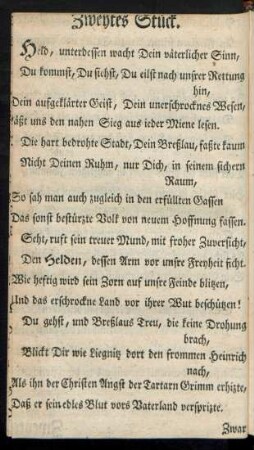 Zweytes Stück.
Held, unterdessen wacht Dein väterlicher Sinn,
Du kommst, Du siehst, Du eilst nach unsrer Rettung
hin,
Dein aufgeklärter Geist, Dein unerschrocknes Wesen,
Läßt uns den nahen Sieg aus ieder Miene lesen.
Die hart bedrohte Stadt, Dein Breßlau, faßte kaum
Nicht Deinen Ruhm, nur Dich, in seinem sichern
Raum,
So sah man auch zugleich in den erfüllten Gassen
Das sonst bestürzte Volk von neuem Hoffnung fassen.
Seht, ruft sein treuer Mund, mit froher Zuversicht,
Den Helden, dessen Arm vor unsre Freyheit ficht.
Wie heftig wird sein Zorn auf unsre Feinde blitzen,
Und das erschrockne Land vor ihrer Wut beschützen!
Du gehst, und Breßlaus Treu, die keine Drohung
brach,
Blickt Dir wie Liegnitz dort den frommen Heinrich
nach,
Als ihn der Christen Angst der Tartarn Grimm erhizte,
Daß er sein edles Blut vors Vaterland versprizte.
Zwar